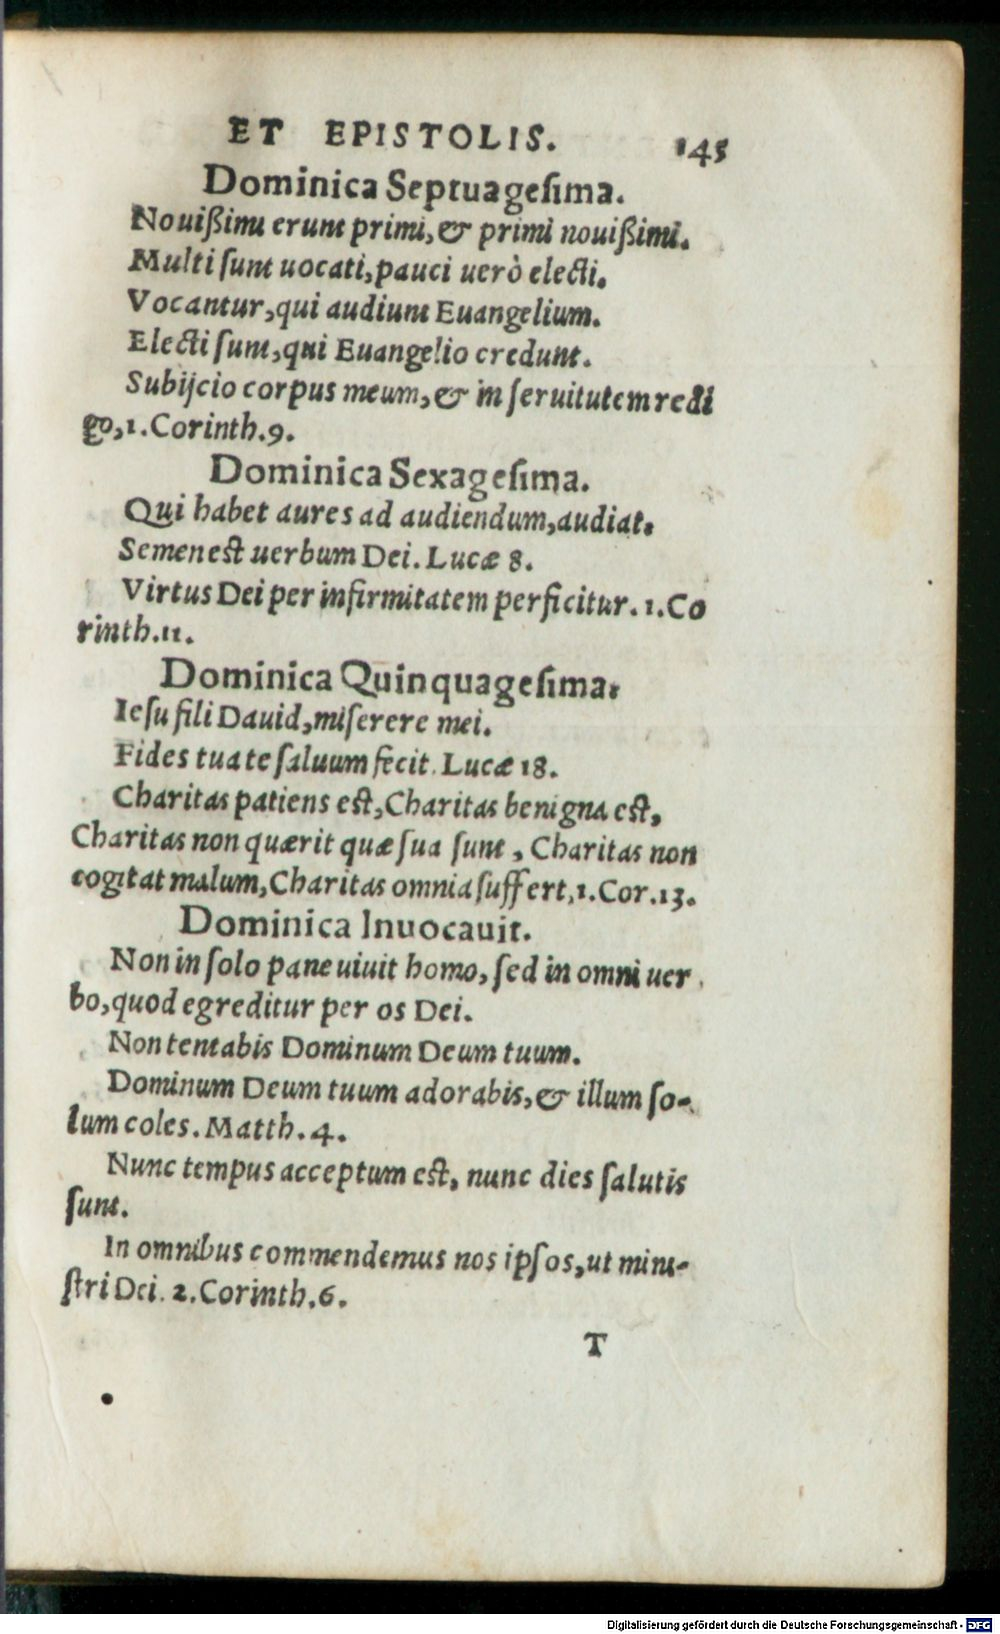 ET EPISTOLIS. 145
Dominica Septuagesima.
Nouißimi erunt primi, & primi nouißimi.
Multi sunt uocati, pauci uerò electi.
Vocantur, qui audiunt Euangelium.
Electi sunt, qui Euangelio credunt.
Subijcio corpus meum, & in seruitutem redi
go, 1. Corinth. 9.
Dominica Sexagesima.
Qui habet aures ad audiendum, audiat.
Semen est uerbum Dei. Lucæ 8.
Virtus Dei per infirmitatem perficitur. 1. Co
rinth. 11.
Dominica Quinquagesima.
Iesu fili Dauid, miserere mei.
Fides tua te saluum fecit. Lucæ 18.
Charitas patiens est, Charitas benigna est,
Charitas non quærit quæ sua sunt, Charitas non
cogitat malum, Charitas omnia suffert, 1. Cor. 13.
Dominica Inuocauit.
Non in solo pane uiuit homo, sed in omni uer
bo, quod egreditur per os Dei.
Non tentabis Dominum Deum tuum.
Dominum Deum tuum adorabis, & illum so-
lum coles. Matth. 4.
Nunc tempus acceptum est, nunc dies salutis
sunt.
In omnibus commendemus nos ipsos, ut mini-
stri Dei. 2. Corinth. 6.
T
Digitalisierung gefördert durch die Deutsche Forschungsgemeinschaft - DFG